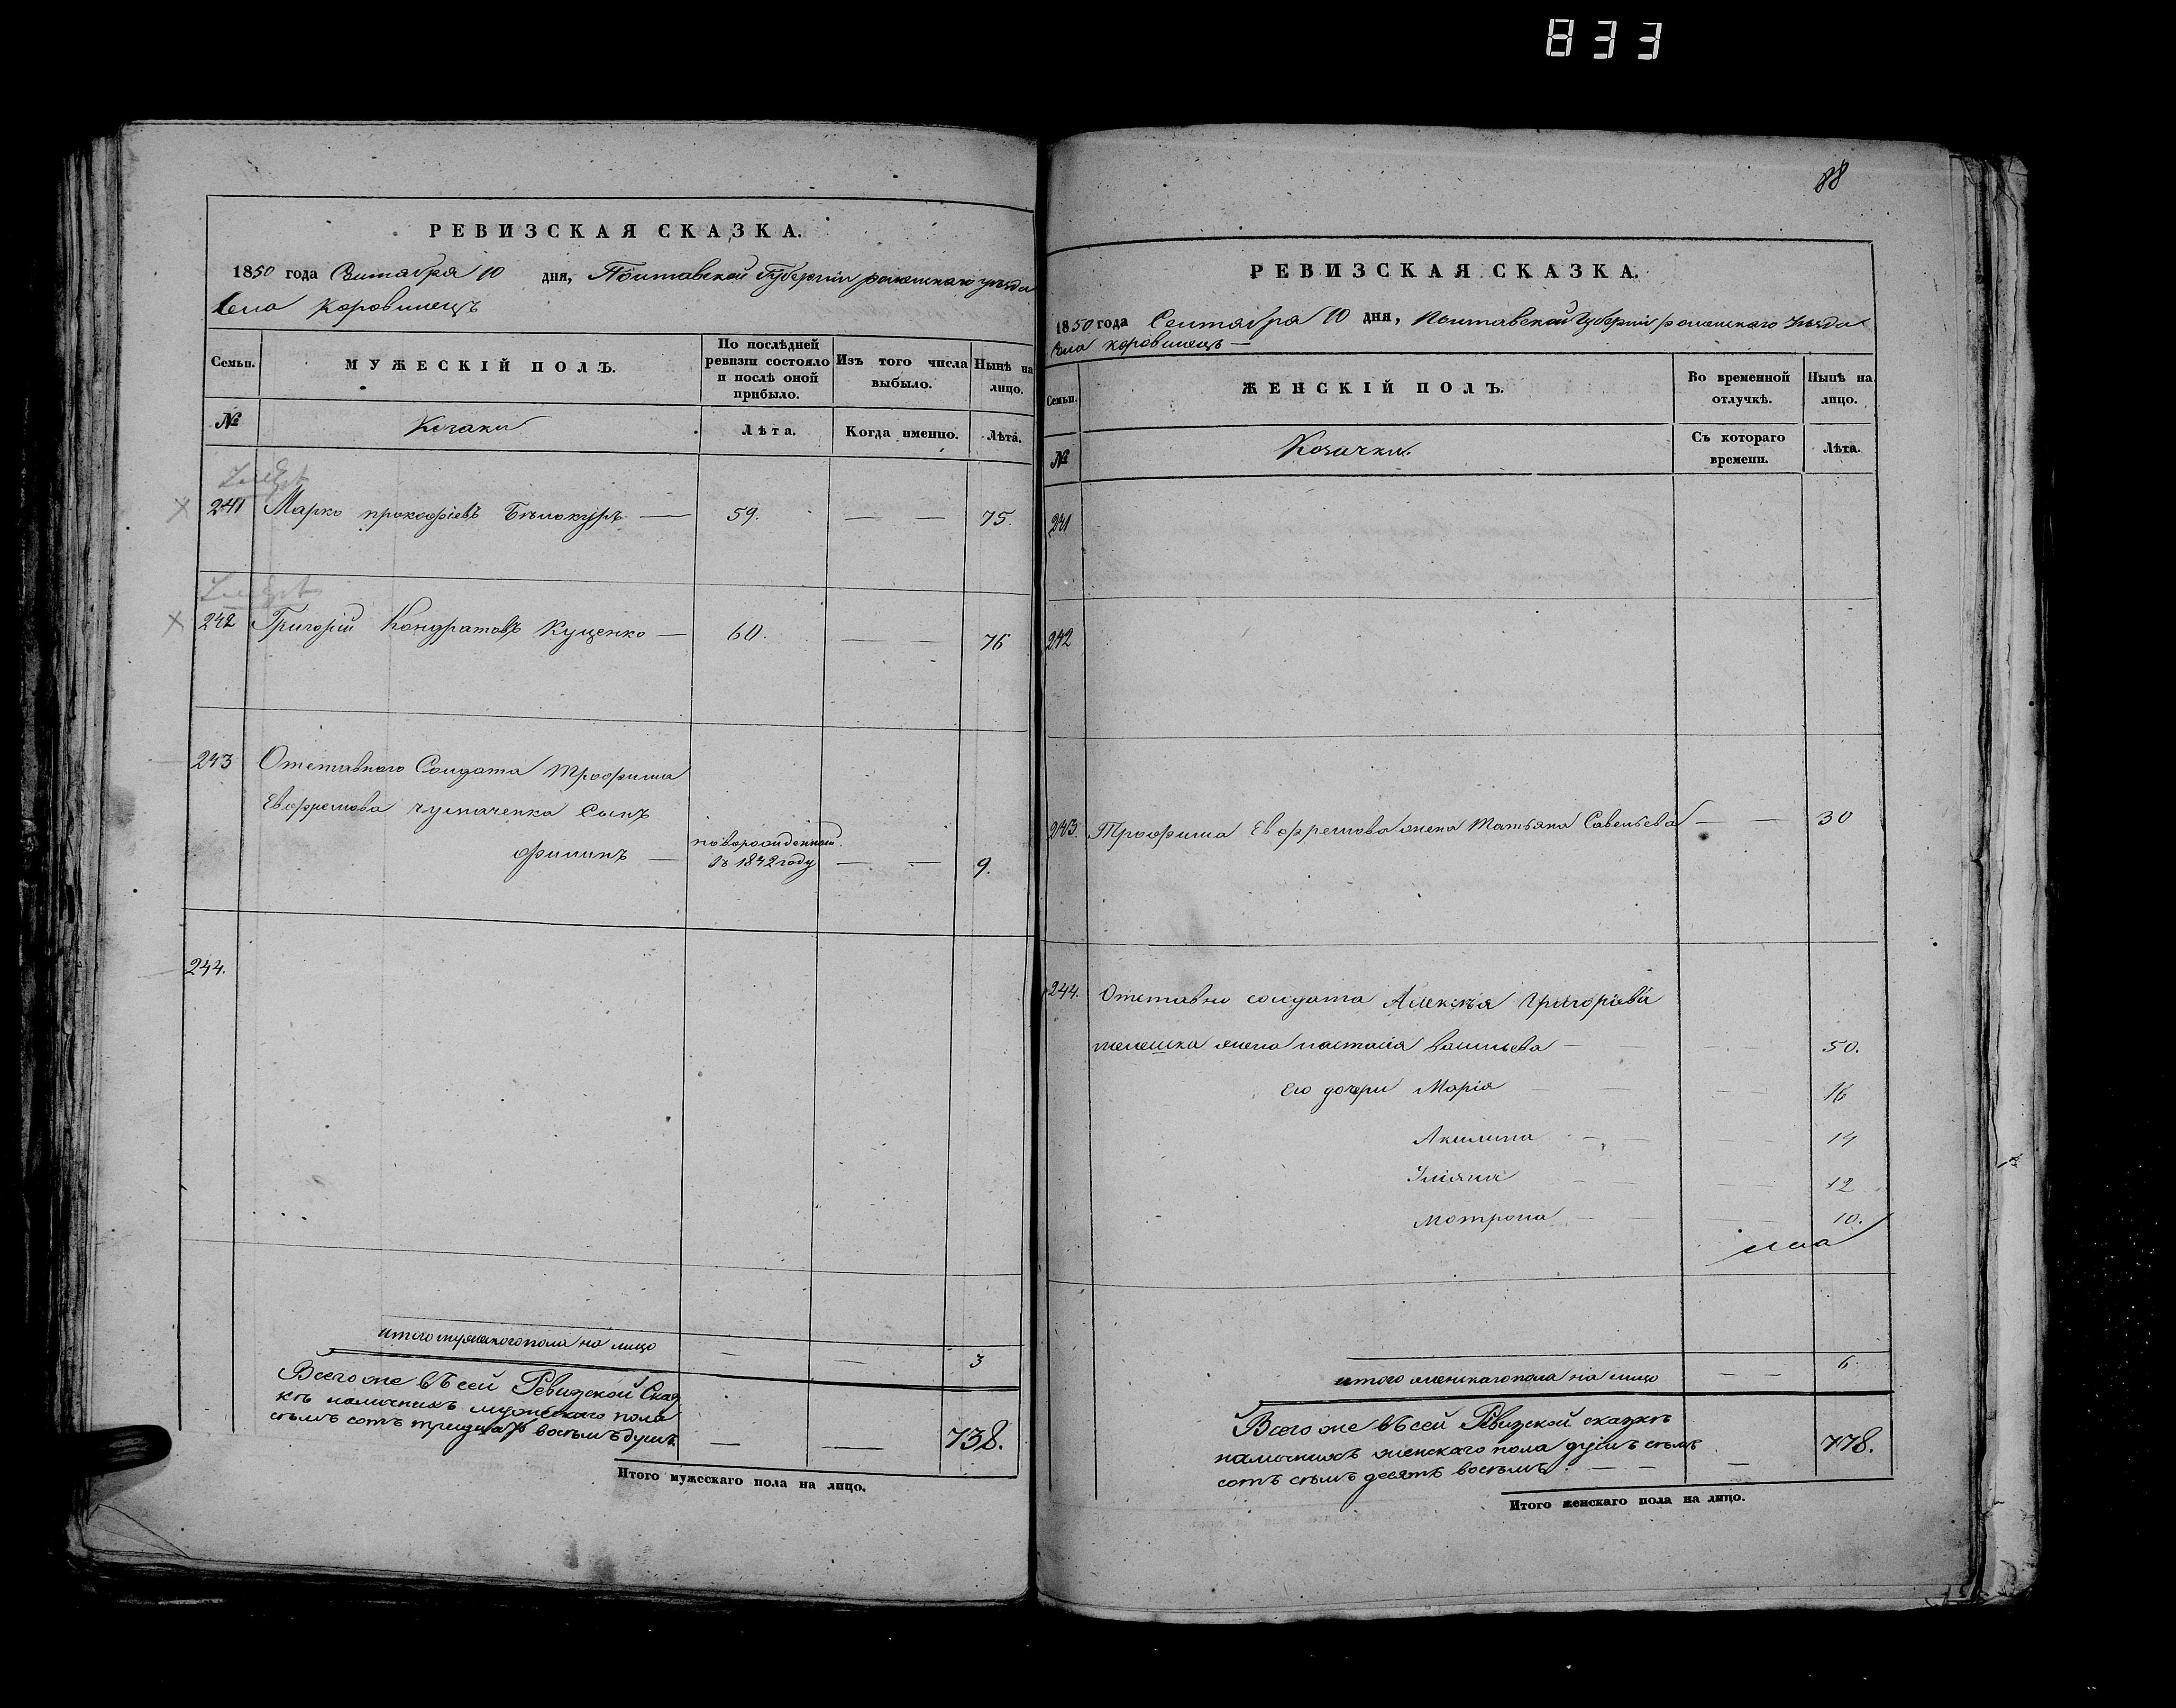 833
РЕВИЗСКАЯ СКАЗКА.
1850 года Сентября 10 дня, Полтавской Губерніи роменскаго уѣзда
Села Коровинецъ
Семьи. МУЖЕСКІЙ ПОЛЪ. По послѣдней ревизіи состояло и послѣ оной прибыло. Изъ того числа выбыло. Нынѣ на лицо.
№ Козаки Лѣта. Когда именно. Лѣта.
241 Марко прокофіевъ Бѣлокуръ — 59. — — 75.
242 Григорій Кондратовъ Куценко — 60. — — 76
243 Отставного Солдата трофима
Евфремова чумаченка Сынъ
филипъ — новорожденный въ 1842 году — — 9.
244.
итого мужескаго пола на лицо — — 3
Всего же въ сей Ревизской Сказ
кѣ наличныхъ мужескаго пола
семъ сотъ тридцать восемъ душъ. — — 738.
Итого мужескаго пола на лицо.
88
РЕВИЗСКАЯ СКАЗКА.
1850 года Сентября 10 дня, Полтавской Губерніи роменскаго Уѣзда
Села коровинецъ —
Семьи. ЖЕНСКІЙ ПОЛЪ. Во временной отлучкѣ. Нынѣ на лицо.
№ Козачки. Съ котораго времени. Лѣта.
241
242
243. Трофима Евфремова жена Татьяна Савельева — — 30
244. Отставно солдата Алексѣя Григоріева
телешка жена настасія васильева — 50.
Его дочери Марія 16
Акилина 14
Уліяна 12
Мотрона 10.
итого женскаго пола на лицо — — 6
Всего же въ сей Ревизской сказкѣ
наличныхъ женскаго пола душъ семъ
сотъ семъ десятъ восемъ. — — — 778.
Итого женскаго пола на лицо.